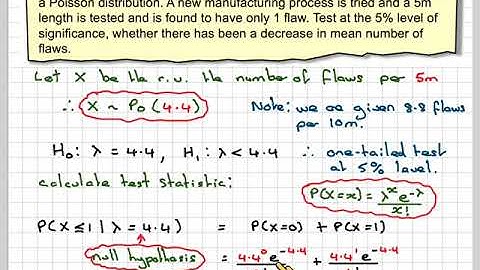 a Poisson distribution. A new manufacturing process is tried and a 5m
length is tested and is found to have only 1 flaw. Test at the 5% level of
significance, whether there has been a decrease in mean number of
flaws.
Let X be the r.v. the number of flaws per 5m
∴ X ~ Po (4.4) Note: we are given 8.8 flaws
per 10m.
H₀: λ = 4.4, H₁: λ < 4.4 ∴ one-tailed test
at 5% level.
calculate test statistic:
P(X=x) = λˣe^-λ / x!
P(X ≤ 1 | λ = 4.4) = P(X=0) + P(X=1)
null hypothesis = 4.4⁰e^-4.4 + 4.4¹e^-4.4